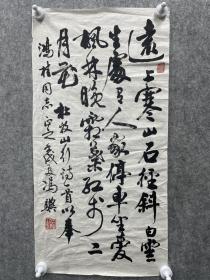 遠上寒山石徑斜白雲
生處有人家停車坐愛
楓林晚霜葉红於二
月花 杜牧山行诗一首以奉
同志正之